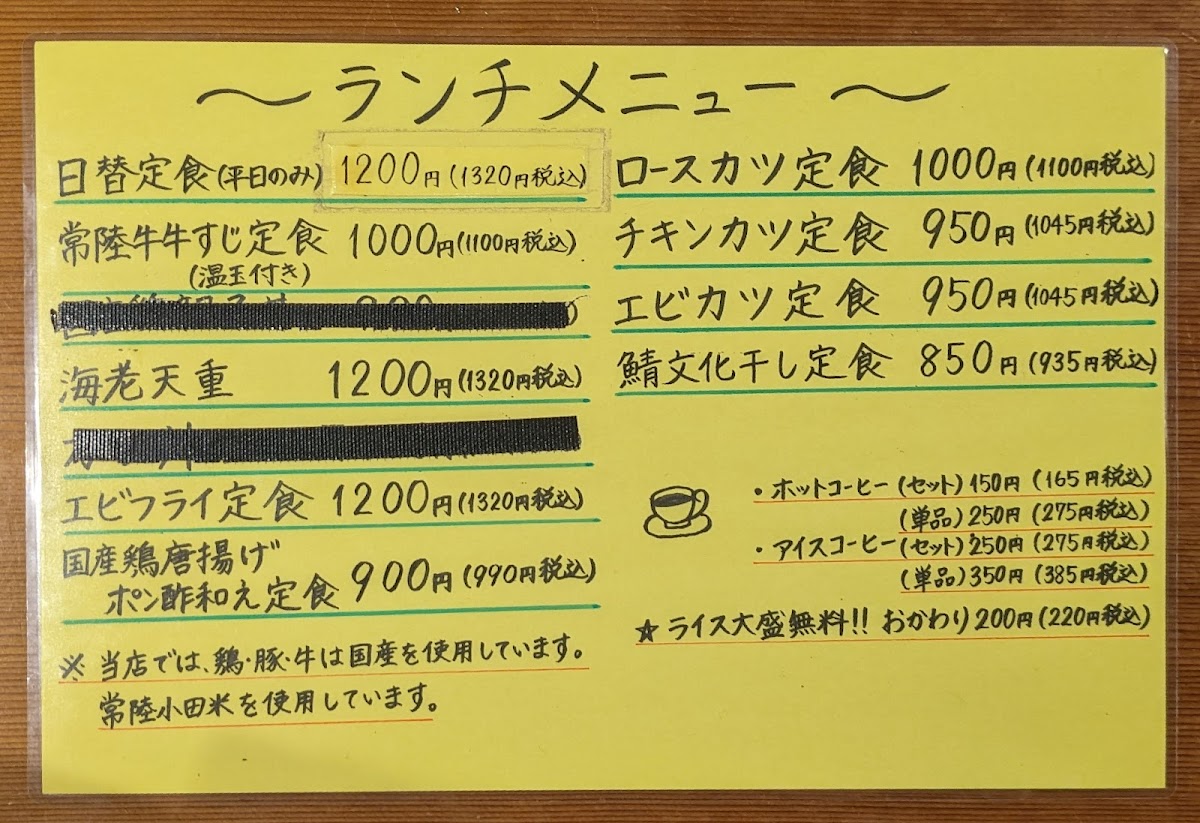 ～ランチメニュー～
日替定食(平日のみ) 1200円(1320円税込)
常陸牛牛すじ定食 1000円(1100円税込)
(温玉付き)
海老天重 1200円(1320円税込)
エビフライ定食 1200円(1320円税込)
国産鶏唐揚げ
ポン酢和え定食 900円(990円税込)
※ 当店では、鶏・豚・牛は国産を使用しています。
常陸小田米を使用しています。
ロースカツ定食 1000円(1100円税込)
チキンカツ定食 950円(1045円税込)
エビカツ定食 950円(1045円税込)
鯖文化干し定食 850円(935円税込)
・ホットコーヒー(セット)150円(165円税込)
(単品)250円(275円税込)
・アイスコーヒー(セット)250円(275円税込)
(単品)350円(385円税込)
☆ライス大盛無料!! おかわり200円(220円税込)